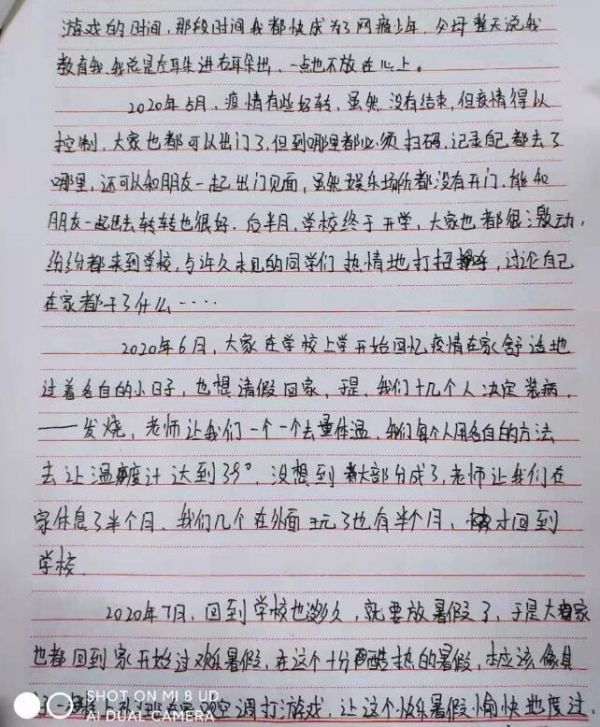 游戏的时间，那段时间我都快成为了网瘾少年，父母整天说我
教育我，我总是左耳朵进右耳朵出，一点也不放在心上。
2020年5月，疫情有些好转，虽然没有结束，但疫情得以
控制，大家也都可以出门了，但到哪里都必须扫码，记录自己都去了
哪里，还可以和朋友一起出门见面，虽然娱乐场所都没有开门，能和
朋友一起出去转转也很好。后半月，学校终于开学，大家也都很激动，
纷纷都来到学校，与许久未见的同学们热情地打招呼，讨论自己
在家都干了什么·····
2020年6月，大家在学校上学开始回忆疫情在家舒适地
过着各自的小日子，也想请假回家，于是，我们十几个人决定装病，
——发烧，老师让我们一个一个去量体温，我们每个人用各自的方法
去让温度计达到39°，没想到大部分成了，老师让我们在
家休息了半个月，我们几个在外面玩了也有半个月，才回到
学校。
2020年7月，回到学校也没多久，就要放暑假了，于是大家
也都回到家开始过欢乐暑假，在这个十分酷热的暑假，本应该像其
空调打游戏，让这个快乐暑假愉快地度过，
SHOT ON MI 8 UD
AI DUAL CAMERA